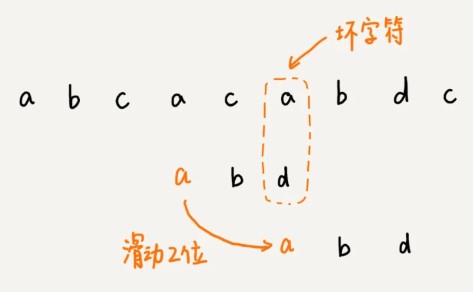 坏字符
a b c a c a b d c
a b d
滑动2位
a b d